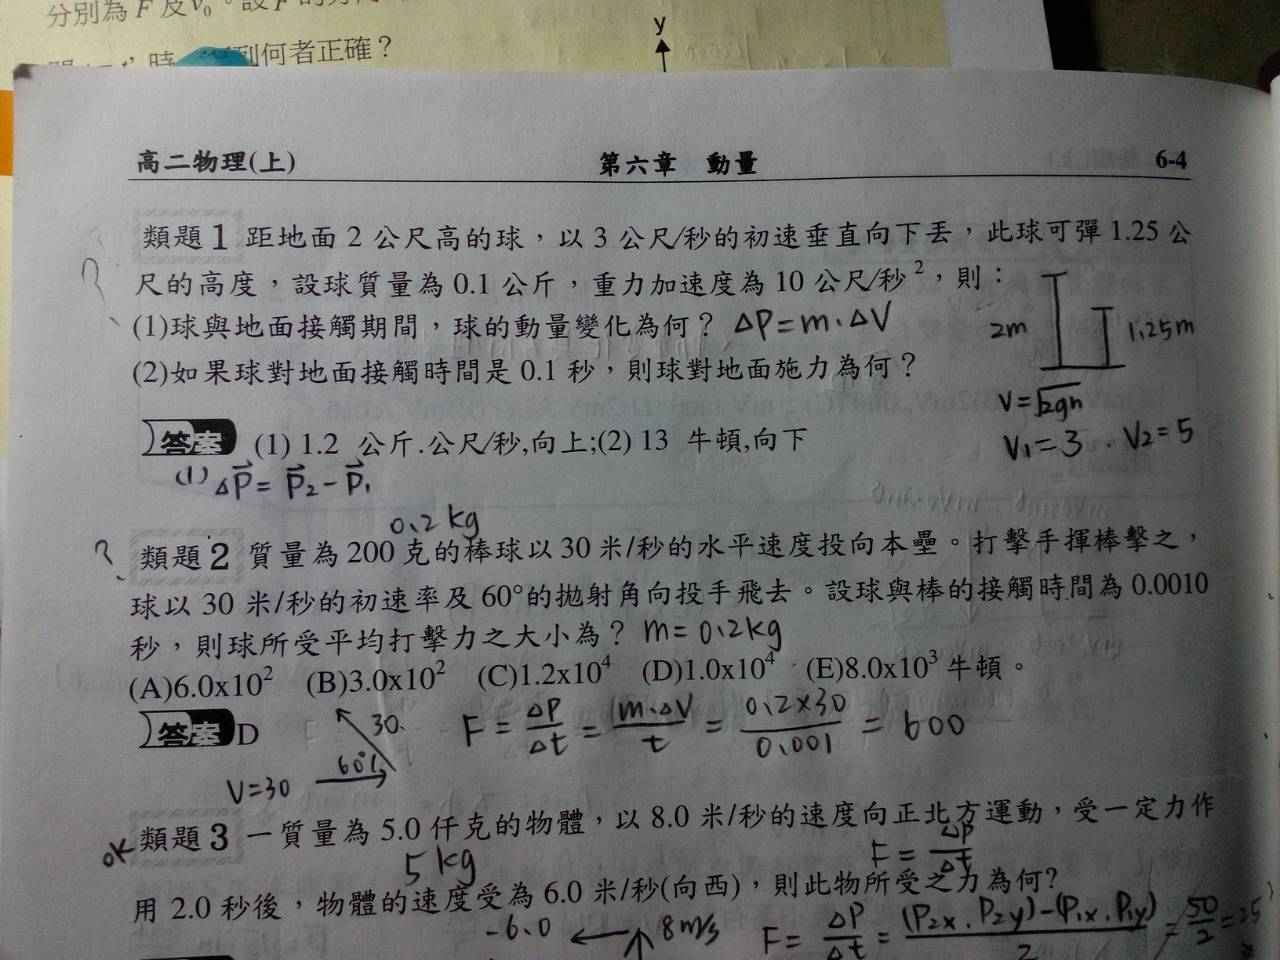 分別為 F 及 v₀。設 F 的方
時 到何者正確？
y
高二物理(上) 第六章 動量 6-4
類題1 距地面 2 公尺高的球，以 3 公尺/秒的初速垂直向下丟，此球可彈 1.25 公
尺的高度，設球質量為 0.1 公斤，重力加速度為 10 公尺/秒²，則：
(1)球與地面接觸期間，球的動量變化為何？ ΔP=m·ΔV
2m 1.25m
(2)如果球對地面接觸時間是 0.1 秒，則球對地面施力為何？
V=√2gh
答案 (1) 1.2 公斤.公尺/秒,向上;(2) 13 牛頓,向下
V₁=3 . V₂=5
(1) ΔP⃗= P⃗₂-P⃗₁
0.2kg
? 類題2 質量為 200 克的棒球以 30 米/秒的水平速度投向本壘。打擊手揮棒擊之，
球以 30 米/秒的初速率及 60°的拋射角向投手飛去。設球與棒的接觸時間為 0.0010
秒，則球所受平均打擊力之大小為？ m=0.2kg
(A)6.0x10² (B)3.0x10² (C)1.2x10⁴ (D)1.0x10⁴ (E)8.0x10³ 牛頓。
答案 D
30
60°
V=30
F = ΔP/Δt = m·ΔV/t = 0.2×30/0.001 = 600
ok 類題3 一質量為 5.0 仟克的物體，以 8.0 米/秒的速度向正北方運動，受一定力作
5kg F = ΔP/Δt
用 2.0 秒後，物體的速度受為 6.0 米/秒(向西)，則此物所受之力為何?
-6.0 8m/s F= ΔP/Δt = (P₂x , P₂y)-(P₁x , P₁y)/2 = 50/2 = 25